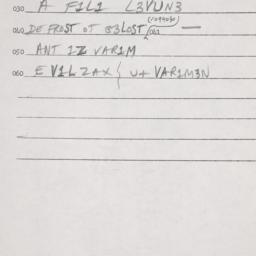 030 A F1L1 L3VUN3
040 DEFROST OT 83LOST/061
050 ANT 1Z VAR1M
060 EV1L ZAX { U+ VAR1M3N